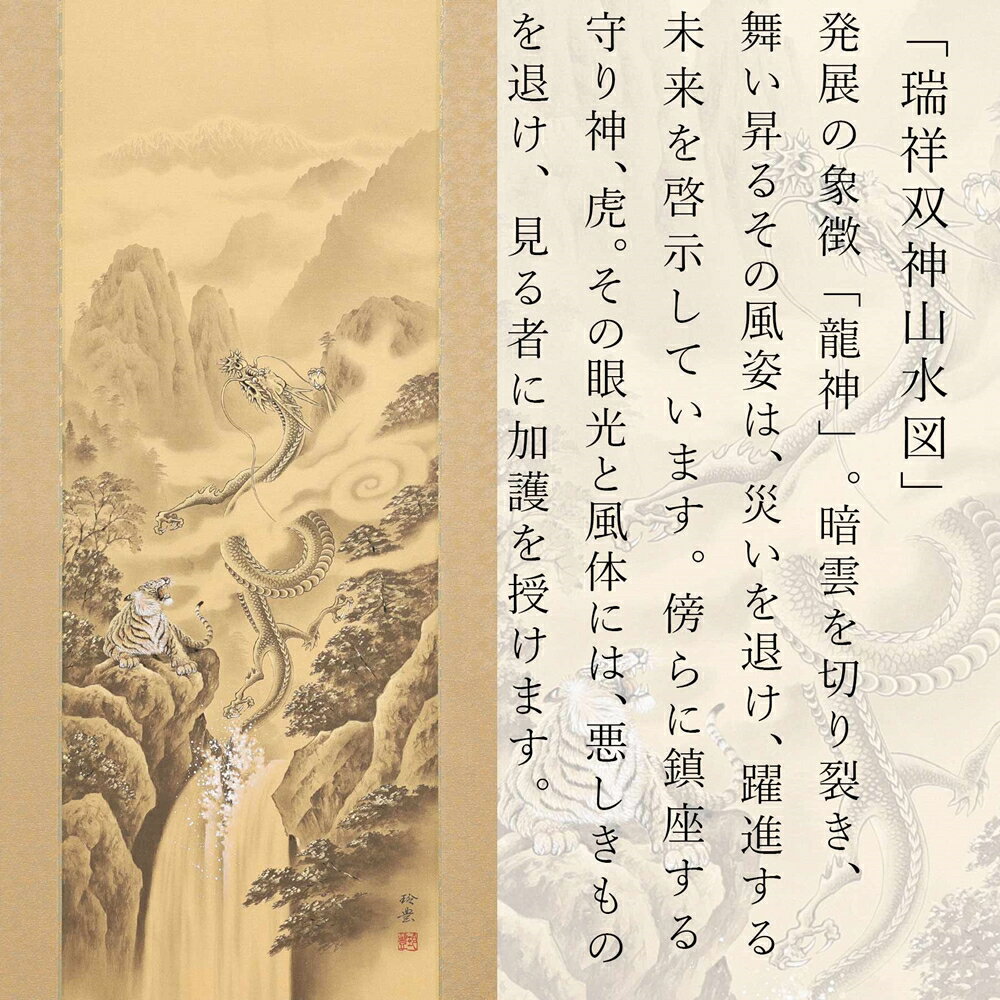 「瑞祥双神山水図」
発展の象徴「龍神」。暗雲を切り裂き、
舞い昇るその風姿は、災いを退け、躍進する
未来を啓示しています。傍らに鎮座する
守り神、虎。その眼光と風体には、悪しきもの
を退け、見る者に加護を授けます。